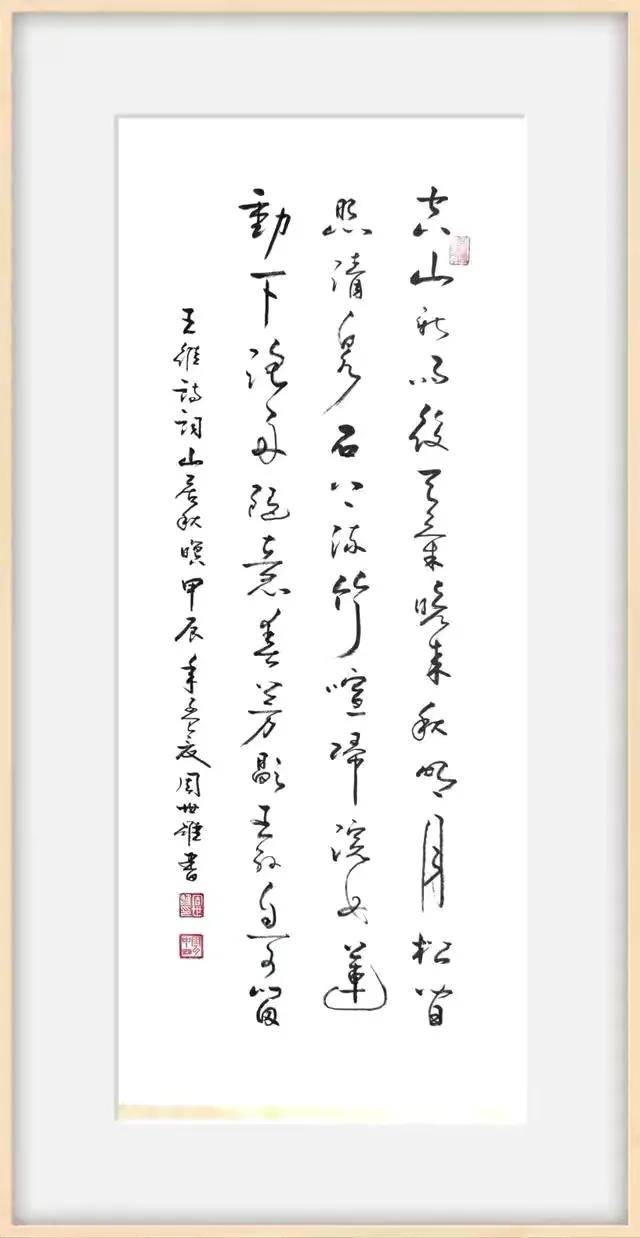 空山新雨後天氣晚来秋明月松間
照清泉石上流竹喧歸浣女蓮
動下漁舟隨意春芳歇王孫自可留
王維詩詞山居秋暝甲辰年孟夏周世雄書